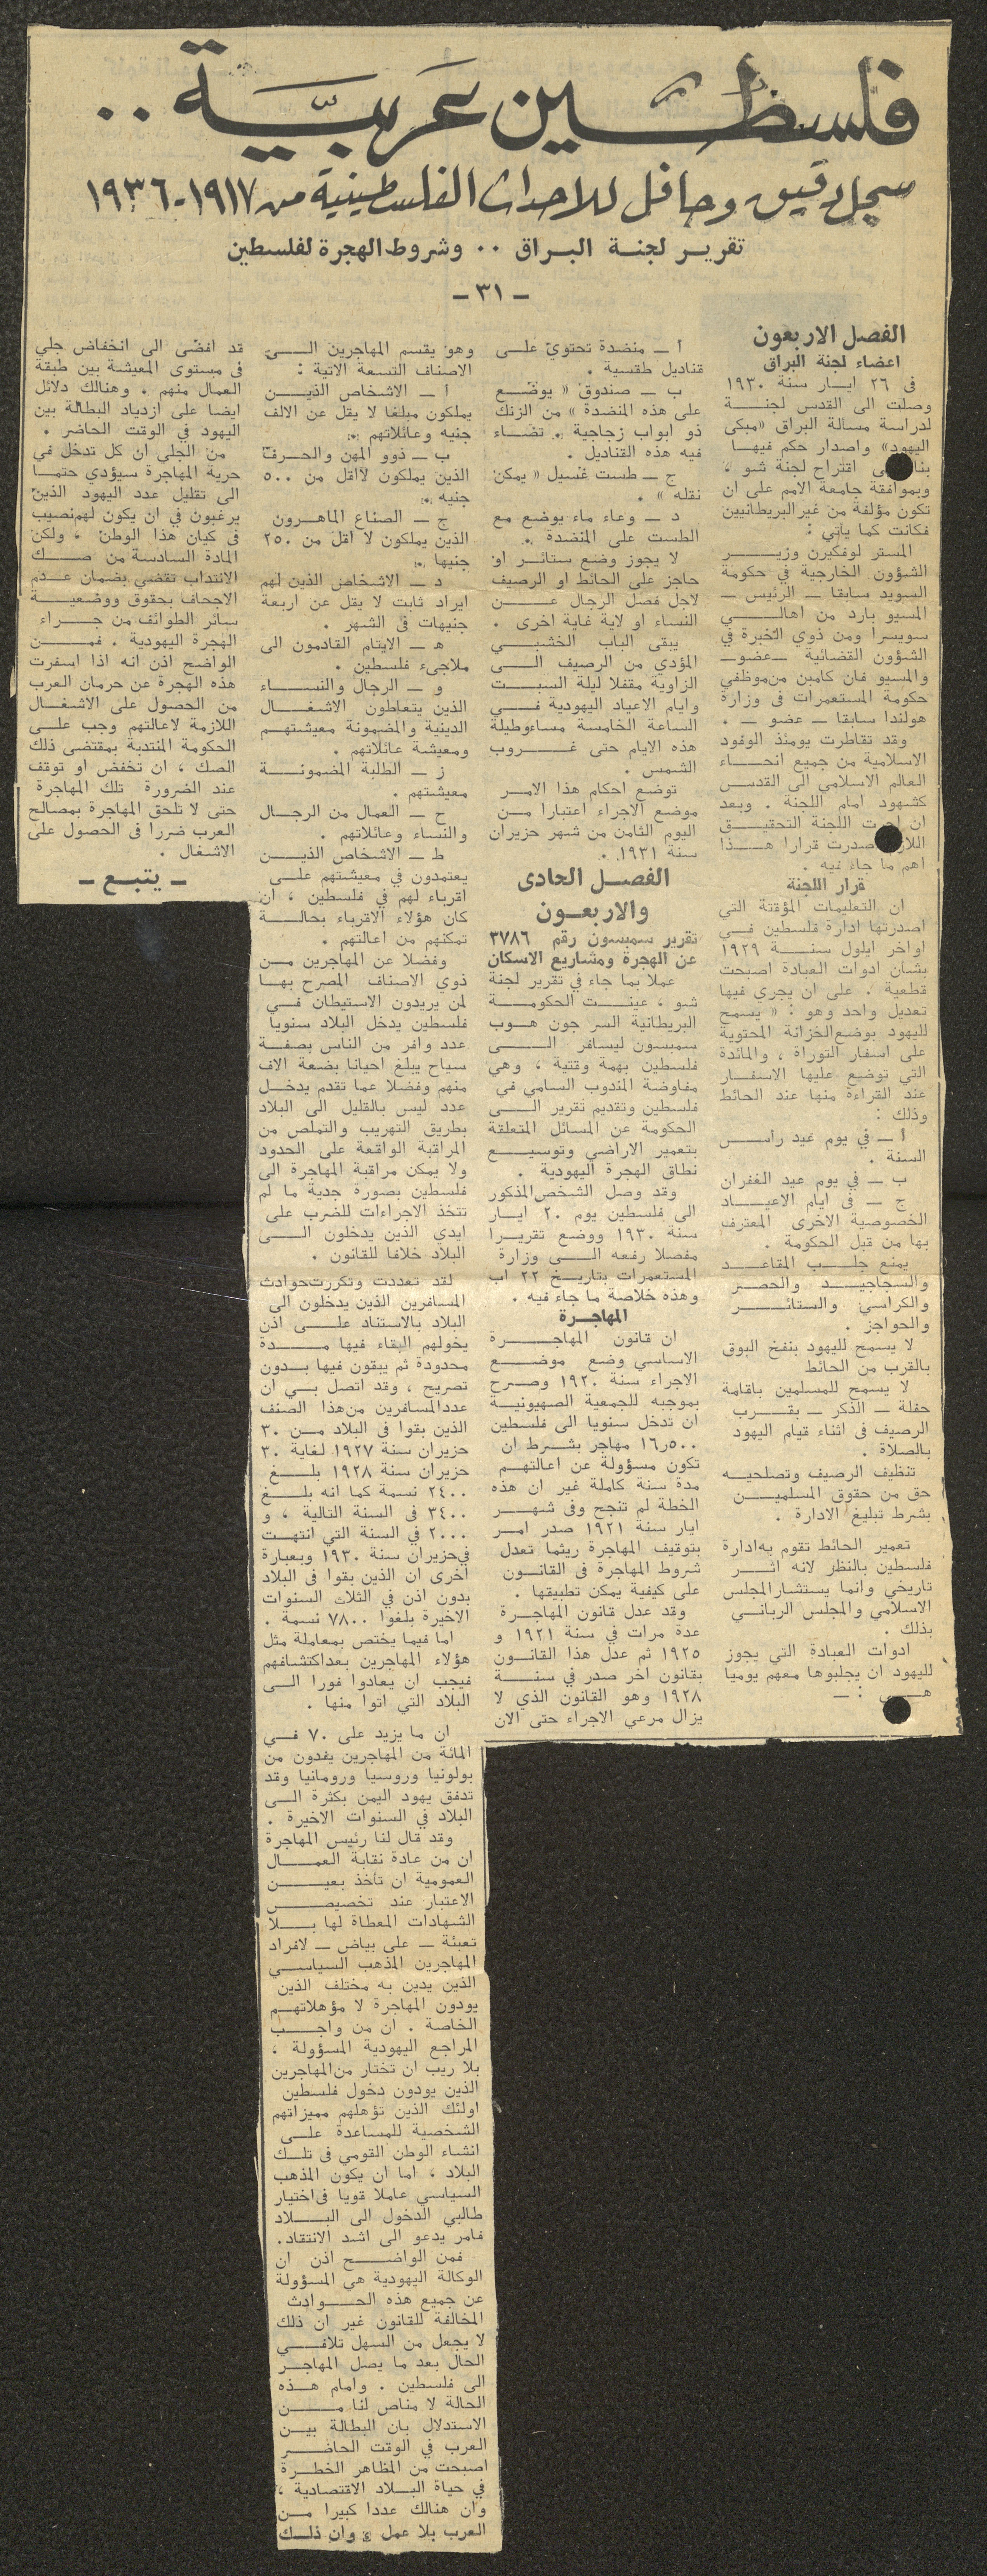 فلسطين عربية ..
سجل دقيق وحافل للاحداث الفلسطينية من ١٩١٧-١٩٣٦
تقرير لجنة البراق .. وشروط الهجرة لفلسطين
- ٣١ -
الفصل الاربعون
اعضاء لجنة البراق
فى ٢٦ ايار سنة ١٩٣٠
وصلت الى القدس لجنة
لدراسة مسالة البراق «مبكى
اليهود» واصدار حكم فيها
اقتراح لجنة شو ،
وبموافقة جامعة الامم على ان
تكون مؤلفة من غير البريطانيين
فكانت كما يأتي :
المستر لوفكيرن وزير
الشؤون الخارجية في حكومة
السويد سابقا - الرئيس -
المسيو بارد من اهالي
سويسرا ومن ذوي الخبرة في
الشؤون القضائية - عضو -
والمسيو فان كامبن من موظفي
حكومة المستعمرات فى وزارة
هولندا سابقا - عضو - .
وقد تقاطرت يومئذ الوفود
الاسلامية من جميع انحاء
العالم الاسلامي الى القدس
كشهود امام اللجنة . وبعد
ان اجرت اللجنة التحقيق
صدرت قرارا هذا
اهم ما جاء فيه .
قرار اللجنة
ان التعليمات المؤقتة التي
اصدرتها ادارة فلسطين في
اواخر ايلول سنة ١٩٢٩
بشان ادوات العبادة اصبحت
قطعية . على ان يجري فيها
تعديل واحد وهو : « يسمح
لليهود بوضع الخزانة المحتوية
على اسفار التوراة ، والمائدة
التي توضع عليها الاسفار
عند القراءة منها عند الحائط
وذلك :
أ - في يوم عيد راس
السنة .
ب - في يوم عيد الغفران
ج - فى ايام الاعياد
الخصوصية الاخرى المعترف
بها من قبل الحكومة .
يمنع جلب المقاعد
والسجاجيد والحصر
والكراسي والستائر
والحواجز .
لا يسمح لليهود بنفخ البوق
بالقرب من الحائط
لا يسمح للمسلمين باقامة
حفلة - الذكر - بقرب
الرصيف فى اثناء قيام اليهود
بالصلاة .
تنظيف الرصيف وتصلحيه
حق من حقوق المسلمين
بشرط تبليغ الادارة .
تعمير الحائط تقوم به ادارة
فلسطين بالنظر لانه اثر
تاريخي وانما يستشار المجلس
الاسلامي والمجلس الرباني
بذلك .
ادوات العبادة التي يجوز
لليهود ان يجلبوها معهم يوميا
هي : -
أ - منضدة تحتوي على
قناديل طقسية .
ب - صندوق « يوضع
على هذه المنضدة » من الزنك
ذو ابواب زجاجية . تضاء
فيه هذه القناديل .
ج - طست غسيل « يمكن
نقله » .
د - وعاء ماء يوضع مع
الطست على المنضدة .
لا يجوز وضع ستائر او
حاجز على الحائط او الرصيف
لاجل فصل الرجال عن
النساء او لاية غاية اخرى .
يبقى الباب الخشبي
المؤدي من الرصيف الى
الزاوية مقفلا ليلة السبت
وايام الاعياد اليهودية في
الساعة الخامسة مساء وطيلة
هذه الايام حتى غروب
الشمس .
توضع احكام هذا الامر
موضع الاجراء اعتبارا من
اليوم الثامن من شهر حزيران
سنة ١٩٣١ .
الفصل الحادى
والاربعون
تقرير سمبسون رقم ٣٧٨٦
عن الهجرة ومشاريع الاسكان
عملا بما جاء في تقرير لجنة
شو ، عينت الحكومة
البريطانية السر جون هوب
سمبسون ليسافر الى
فلسطين بهمة وقتية ، وهي
مفاوضة المندوب السامي فى
فلسطين وتقديم تقرير الى
الحكومة عن المسائل المتعلقة
بتعمير الاراضي وتوسيع
نطاق الهجرة اليهودية .
وقد وصل الشخص المذكور
الى فلسطين يوم ٢٠ ايار
سنة ١٩٣٠ ووضع تقريرا
مفصلا رفعه الى وزارة
المستعمرات بتاريخ ٢٢ اب
وهذه خلاصة ما جاء فيه .
المهاجرة
ان قانون المهاجرة
الاساسي وضع موضع
الاجراء سنة ١٩٢٠ وصرح
بموجبه للجمعية الصهيونية
ان تدخل سنويا الى فلسطين
١٦٫٥٠٠ مهاجر بشرط ان
تكون مسؤولة عن اعالتهم
مدة سنة كاملة غير ان هذه
الخطة لم تنجح وفى شهر
ايار سنة ١٩٢١ صدر امر
بتوقيف المهاجرة ريثما تعدل
شروط المهاجرة فى القانون
على كيفية يمكن تطبيقها .
وقد عدل قانون المهاجرة
عدة مرات في سنة ١٩٢١ و
١٩٢٥ ثم عدل هذا القانون
بقانون اخر صدر في سنة
١٩٢٨ وهو القانون الذي لا
يزال مرعي الاجراء حتى الان
وهو يقسم المهاجرين الى
الاصناف التسعة الاتية :
أ - الاشخاص الذين
يملكون مبلغا لا يقل عن الالف
جنيه وعائلاتهم .
ب - ذوو المهن والحرف
الذين يملكون لااقل من ٥٠٠
جنيه .
ج - الصناع الماهرون
الذين يملكون لا اقل من ٢٥٠
جنيها .
د - الاشخاص الذين لهم
ايراد ثابت لا يقل عن اربعة
جنيهات فى الشهر .
ه - الايتام القادمون الى
ملاجىء فلسطين .
و - الرجال والنساء
الذين يتعاطون الاشغال
الدينية والمضمونة معيشتهم
ومعيشة عائلاتهم .
ز - الطلبة المضمونة
معيشتهم .
ح - العمال من الرجال
والنساء وعائلاتهم .
ط - الاشخاص الذين
يعتمدون في معيشتهم على
اقرباء لهم في فلسطين ، ان
كان هؤلاء الاقرباء بحالة
تمكنهم من اعالتهم .
وفضلا عن المهاجرين من
ذوي الاصناف المصرح بها
لمن يريدون الاستيطان في
فلسطين يدخل البلاد سنويا
عدد وافر من الناس بصفة
سياح يبلغ احيانا بضعة الاف
منهم وفضلا عما تقدم يدخل
عدد ليس بالقليل الى البلاد
بطريق التهريب والتملص من
المراقبة الواقعة على الحدود
ولا يمكن مراقبة المهاجرة الى
فلسطين بصورة جدية ما لم
تتخذ الاجراءات للضرب على
ايدي الذين يدخلون الى
البلاد خلافا للقانون .
لقد تعددت وتكررت حوادث
المسافرين الذين يدخلون الى
البلاد بالاستناد على اذن
يخولهم البقاء فيها مدة
محدودة ثم يبقون فيها بدون
تصريح ، وقد اتصل بي ان
عدد المسافرين من هذا الصنف
الذين بقوا فى البلاد من ٣٠
حزيران سنة ١٩٢٧ لغاية ٣٠
حزيران سنة ١٩٢٨ بلغ
٢٤٠٠ نسمة كما انه بلغ
٣٤٠٠ فى السنة التالية ، و
٢٠٠٠ في السنة التي انتهت
في حزيران سنة ١٩٣٠ وبعبارة
اخرى ان الذين بقوا فى البلاد
بدون اذن في الثلاث السنوات
الاخيرة بلغوا ٧٨٠٠ نسمة .
اما فيما يختص بمعاملة مثل
هؤلاء المهاجرين بعد اكتشافهم
فيجب ان يعادوا فورا الى
البلاد التي اتوا منها .
ان ما يزيد على ٧٠ في
المائة من المهاجرين يفدون من
بولونيا وروسيا ورومانيا وقد
تدفق يهود اليمن بكثرة الى
البلاد في السنوات الاخيرة .
وقد قال لنا رئيس المهاجرة
ان من عادة نقابة العمال
العمومية ان تأخذ بعين
الاعتبار عند تخصيص
الشهادات المعطاة لها بلا
تعبئة - على بياض - لافراد
المهاجرين المذهب السياسي
الذين يدين به مختلف الذين
يودون المهاجرة لا مؤهلاتهم
الخاصة . ان من واجب
المراجع اليهودية المسؤولة ،
بلا ريب ان تختار من المهاجرين
الذين يودون دخول فلسطين
اولئك الذين تؤهلهم مميزاتهم
الشخصية للمساعدة على
انشاء الوطن القومي فى تلك
البلاد ، اما ان يكون المذهب
السياسي عاملا قويا فى اختيار
طالبي الدخول الى البلاد
فامر يدعو الى اشد الانتقاد.
فمن الواضح اذن ان
الوكالة اليهودية هي المسؤولة
عن جميع هذه الحوادث
المخالفة للقانون غير ان ذلك
لا يجعل من السهل تلافي
الحال بعد ما يصل المهاجر
الى فلسطين . وامام هذه
الحالة لا مناص لنا من
الاستدلال بان البطالة بين
العرب في الوقت الحاضر
اصبحت من المظاهر الخطرة
في حياة البلاد الاقتصادية ،
وان هنالك عددا كبيرا من
العرب بلا عمل ، وان ذلك
قد افضى الى انخفاض جلي
فى مستوى المعيشة بين طبقة
العمال منهم . وهنالك دلائل
ايضا على ازدياد البطالة بين
اليهود في الوقت الحاضر .
من الجلي ان كل تدخل في
حرية المهاجرة سيؤدي حتما
الى تقليل عدد اليهود الذين
يرغبون في ان يكون لهم نصيب
فى كيان هذا الوطن ، ولكن
المادة السادسة من صك
الانتداب تقضي بضمان عدم
الاجحاف بحقوق ووضعية
سائر الطوائف من جراء
الهجرة اليهودية . فمن
الواضح اذن انه اذا اسفرت
هذه الهجرة عن حرمان العرب
من الحصول على الاشغال
اللازمة لاعالتهم وجب على
الحكومة المنتدبة بمقتضى ذلك
الصك ، ان تخفض او توقف
عند الضرورة تلك المهاجرة
حتى لا تلحق المهاجرة بمصالح
العرب ضررا فى الحصول على
الاشغال .
- يتبع -